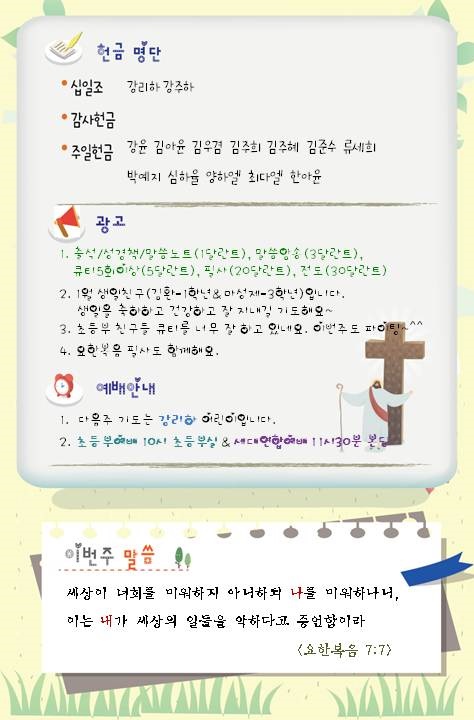 헌금 명단
• 십일조 강리하 강주하
• 감사헌금
• 주일헌금 강윤 김아윤 김우겸 김주희 김주혜 김준수 류세희
박예지 심하율 양하엘 최다엘 한아윤
광고
1. 출석/성경책/말씀노트(1달란트), 말씀암송(3달란트),
큐티5회이상(5달란트), 필사(20달란트), 전도(30달란트)
2. 1월 생일친구(김환-1학년&마성제-3학년)입니다.
생일을 축하하고 건강하고 잘 지내길 기도해요~
3. 초등부 친구들 큐티를 너무 잘 하고 있네요. 이번주도 파이팅~^^
4. 요한복음 필사도 함께해요.
예배안내
1. 다음주 기도는 강리하 어린이입니다.
2. 초등부예배 10시 초등부실 & 세대연합예배 11시30분 본당
이번주 말씀
세상이 너희를 미워하지 아니하되 나를 미워하나니,
이는 내가 세상의 일들을 악하다고 증언함이라
(요한복음 7:7)